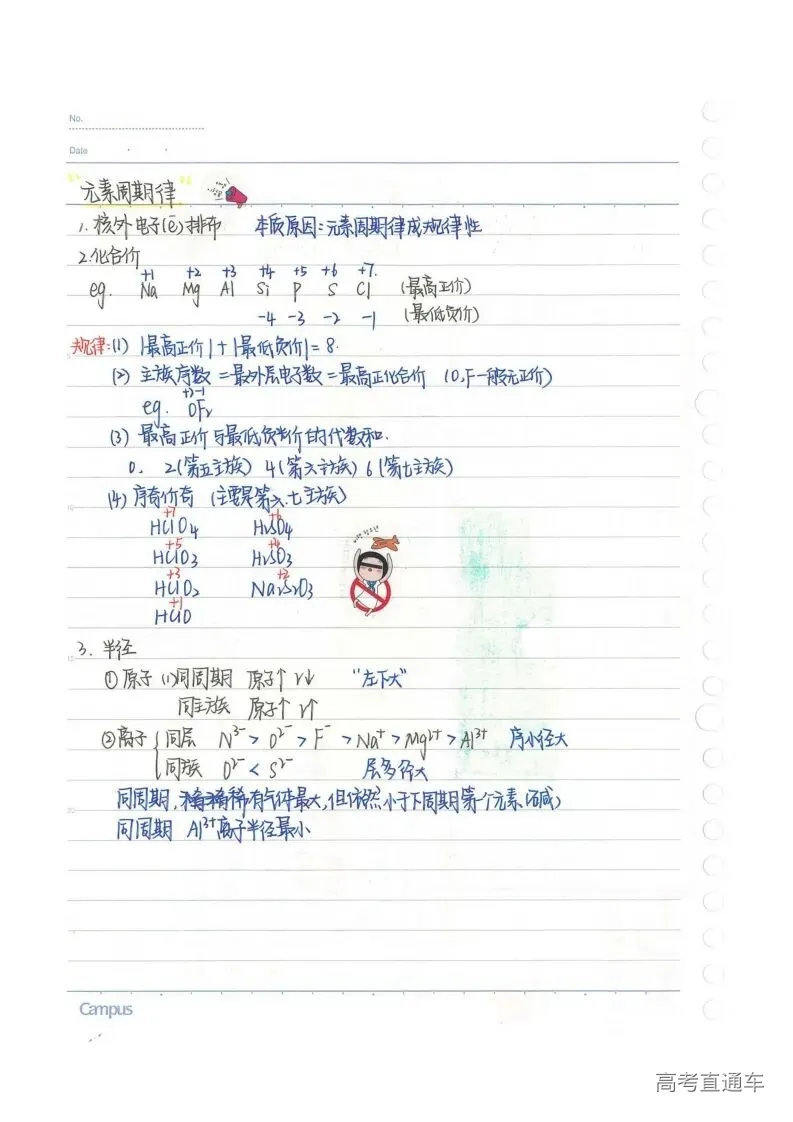 No.
Date
元素周期律
1. 核外电子(e̅)排布 本质原因:元素周期律成规律性
2.化合价
+1 +2 +3 +4 +5 +6 +7
eg. Na Mg Al Si P S Cl (最高正价)
-4 -3 -2 -1 (最低负价)
规律:(1) |最高正价|+|最低负价|=8.
(2) 主族序数=最外层电子数=最高正化合价 (O,F一般无正价)
+2 -1
eg. OF₂
(3) 最高正价与最低负价的代数和.
0. 2(第五主族) 4(第六主族) 6(第七主族)
(4) 序奇价奇 (主要是第六.七主族)
+7 +6
HClO₄ H₂SO₄
+5 +4
HClO₃ H₂SO₃
+3 +2
HClO₂ Na₂S₂O₃
+1
HClO
3. 半径
①原子 (1)同周期 原子↑ r↓ "左下大"
同主族 原子↑ r↑
②离子 { 同层 N³⁻ > O²⁻ > F⁻ > Na⁺ > Mg²⁺ > Al³⁺ 序小径大
同族 O²⁻ < S²⁻ 层多径大
同周期,稀有气体最大,但依然小于下周期第一个元素(碱)
同周期 Al³⁺离子半径最小
Campus
高考直通车